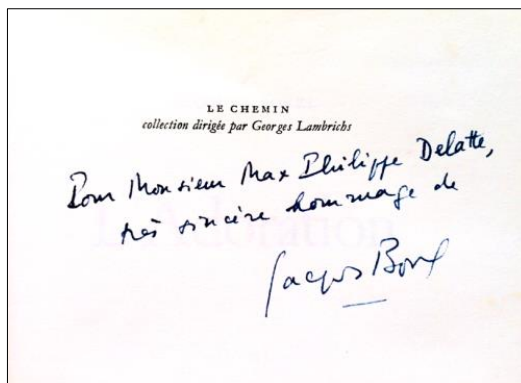 LE CHEMIN
collection dirigée par Georges Lambrichs
Pour Monsieur Max Philippe Delatte,
très sincère hommage de
L'Adoration
Jacques Borel